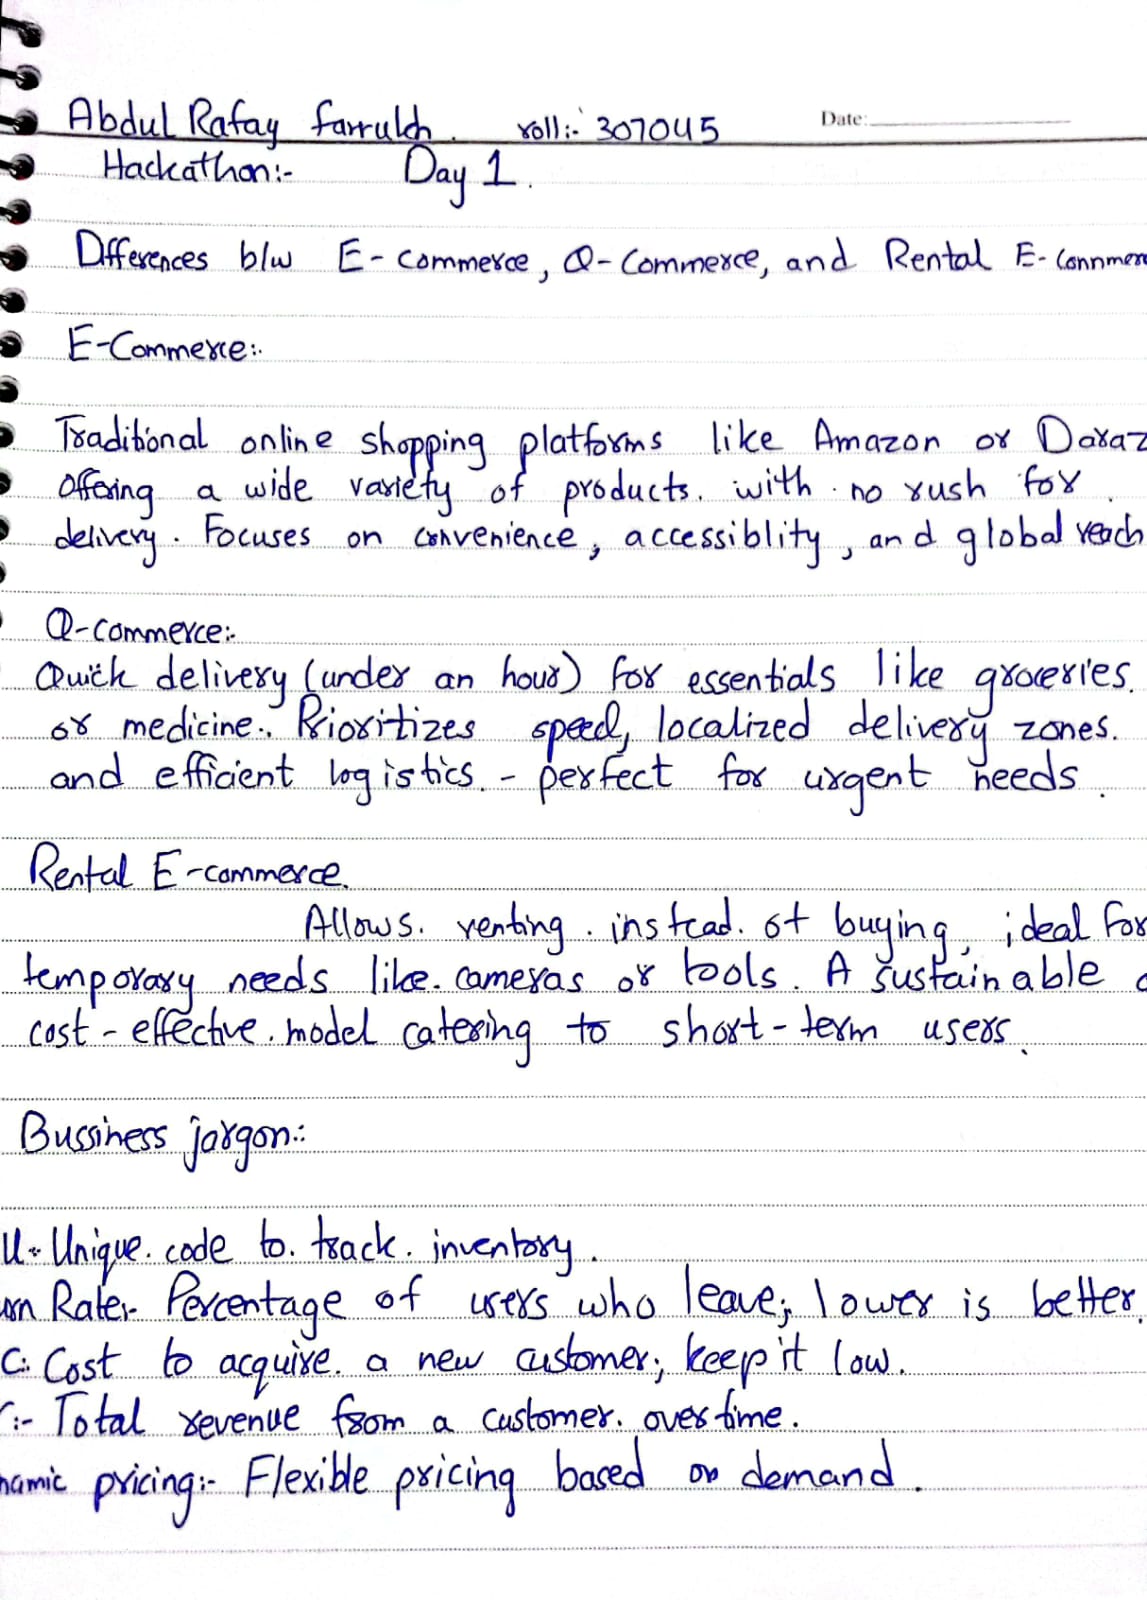 Abdul Rafay Farrukh. roll:- 307045 Date:
Hackathon:- Day 1.
Differences b/w E-commerce, Q-Commerce, and Rental E-Commer
E-Commerce:-
Traditional online shopping platforms like Amazon or Daraz
offering a wide variety of products. with no rush for
delivery. Focuses on convenience, accessiblity, and global reach
Q-commerce:-
Quick delivery (under an hour) for essentials like groceries.
or medicine. Prioritizes speed, localized delivery zones.
and efficient logistics. - perfect for urgent needs.
Rental E-commerce.
Allows. renting. instead. of buying, ideal for
temporary needs like. cameras or tools. A sustainable
cost-effective. model catering to short-term users.
Bussiness jargon:-
U:- Unique. code to. track. inventory.
Rate:- Percentage of users who leave; lower is better.
C:- Cost to acquire. a new customer; keep it low.
:- Total revenue from a customer. over time.
namic pricing:- Flexible pricing based on demand.